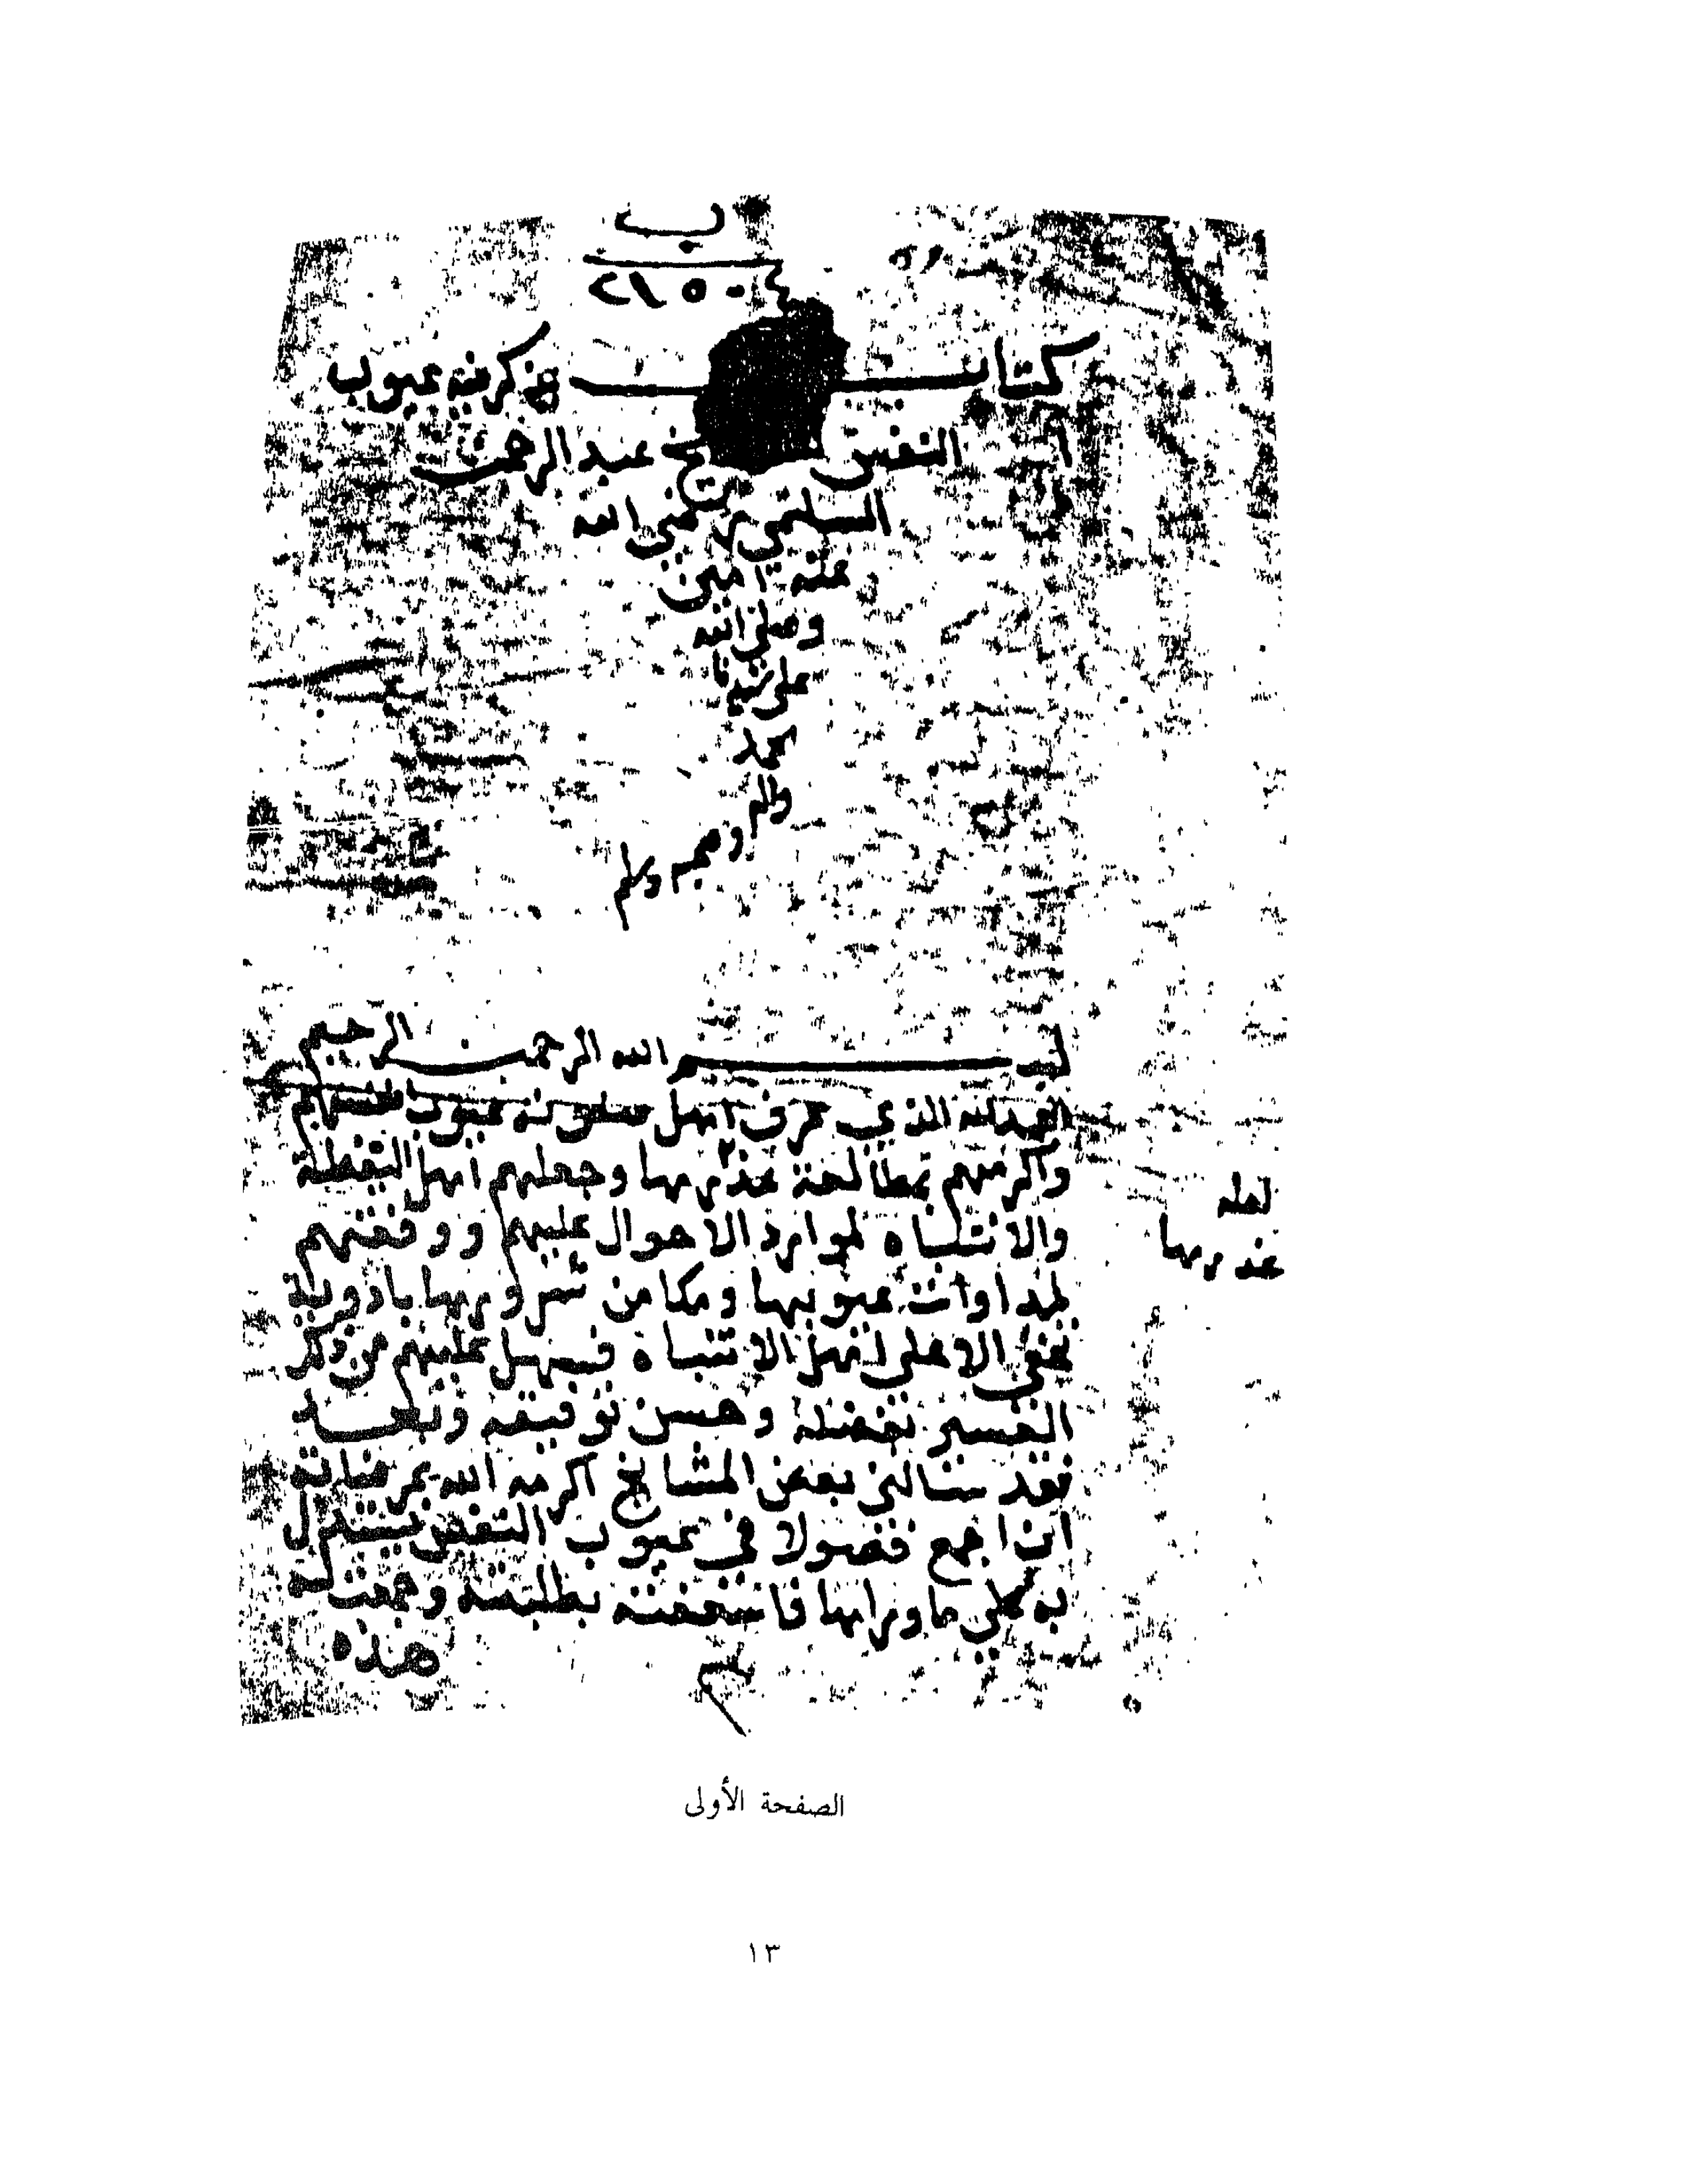 ب
كتاب ذكر فيه عيوب
النفس عبد الرحمن
السلمي رضي الله
عنه امين
وصلى الله
على سيدنا
محمد
واله
وصحبه وسلم
بسم الله الرحمن الرحيم
الحمد لله الذي عرف اهل صفوته عيوب انفسهم
واكرمهم بمطالعة عذرها وجعلهم اهل اليقظة
والانتباه لموارد الاحوال عليهم ووفقهم
لمداوات عيوبها ومكامن شرورها بادوية
تخفى الا على اهل الانتباه فيسهل عليهم من ذكر
بفضله وحسن توفيقه وبعد
فقد سالني بعض المشايخ اكرمه الله بمرضاته
ان اجمع فصولا في عيوب النفس يستدل
به على ما وراها فاسعفته بطلبته وجمعت له
هذه
لعله
غدرها
الصفحة الأولى
١٣